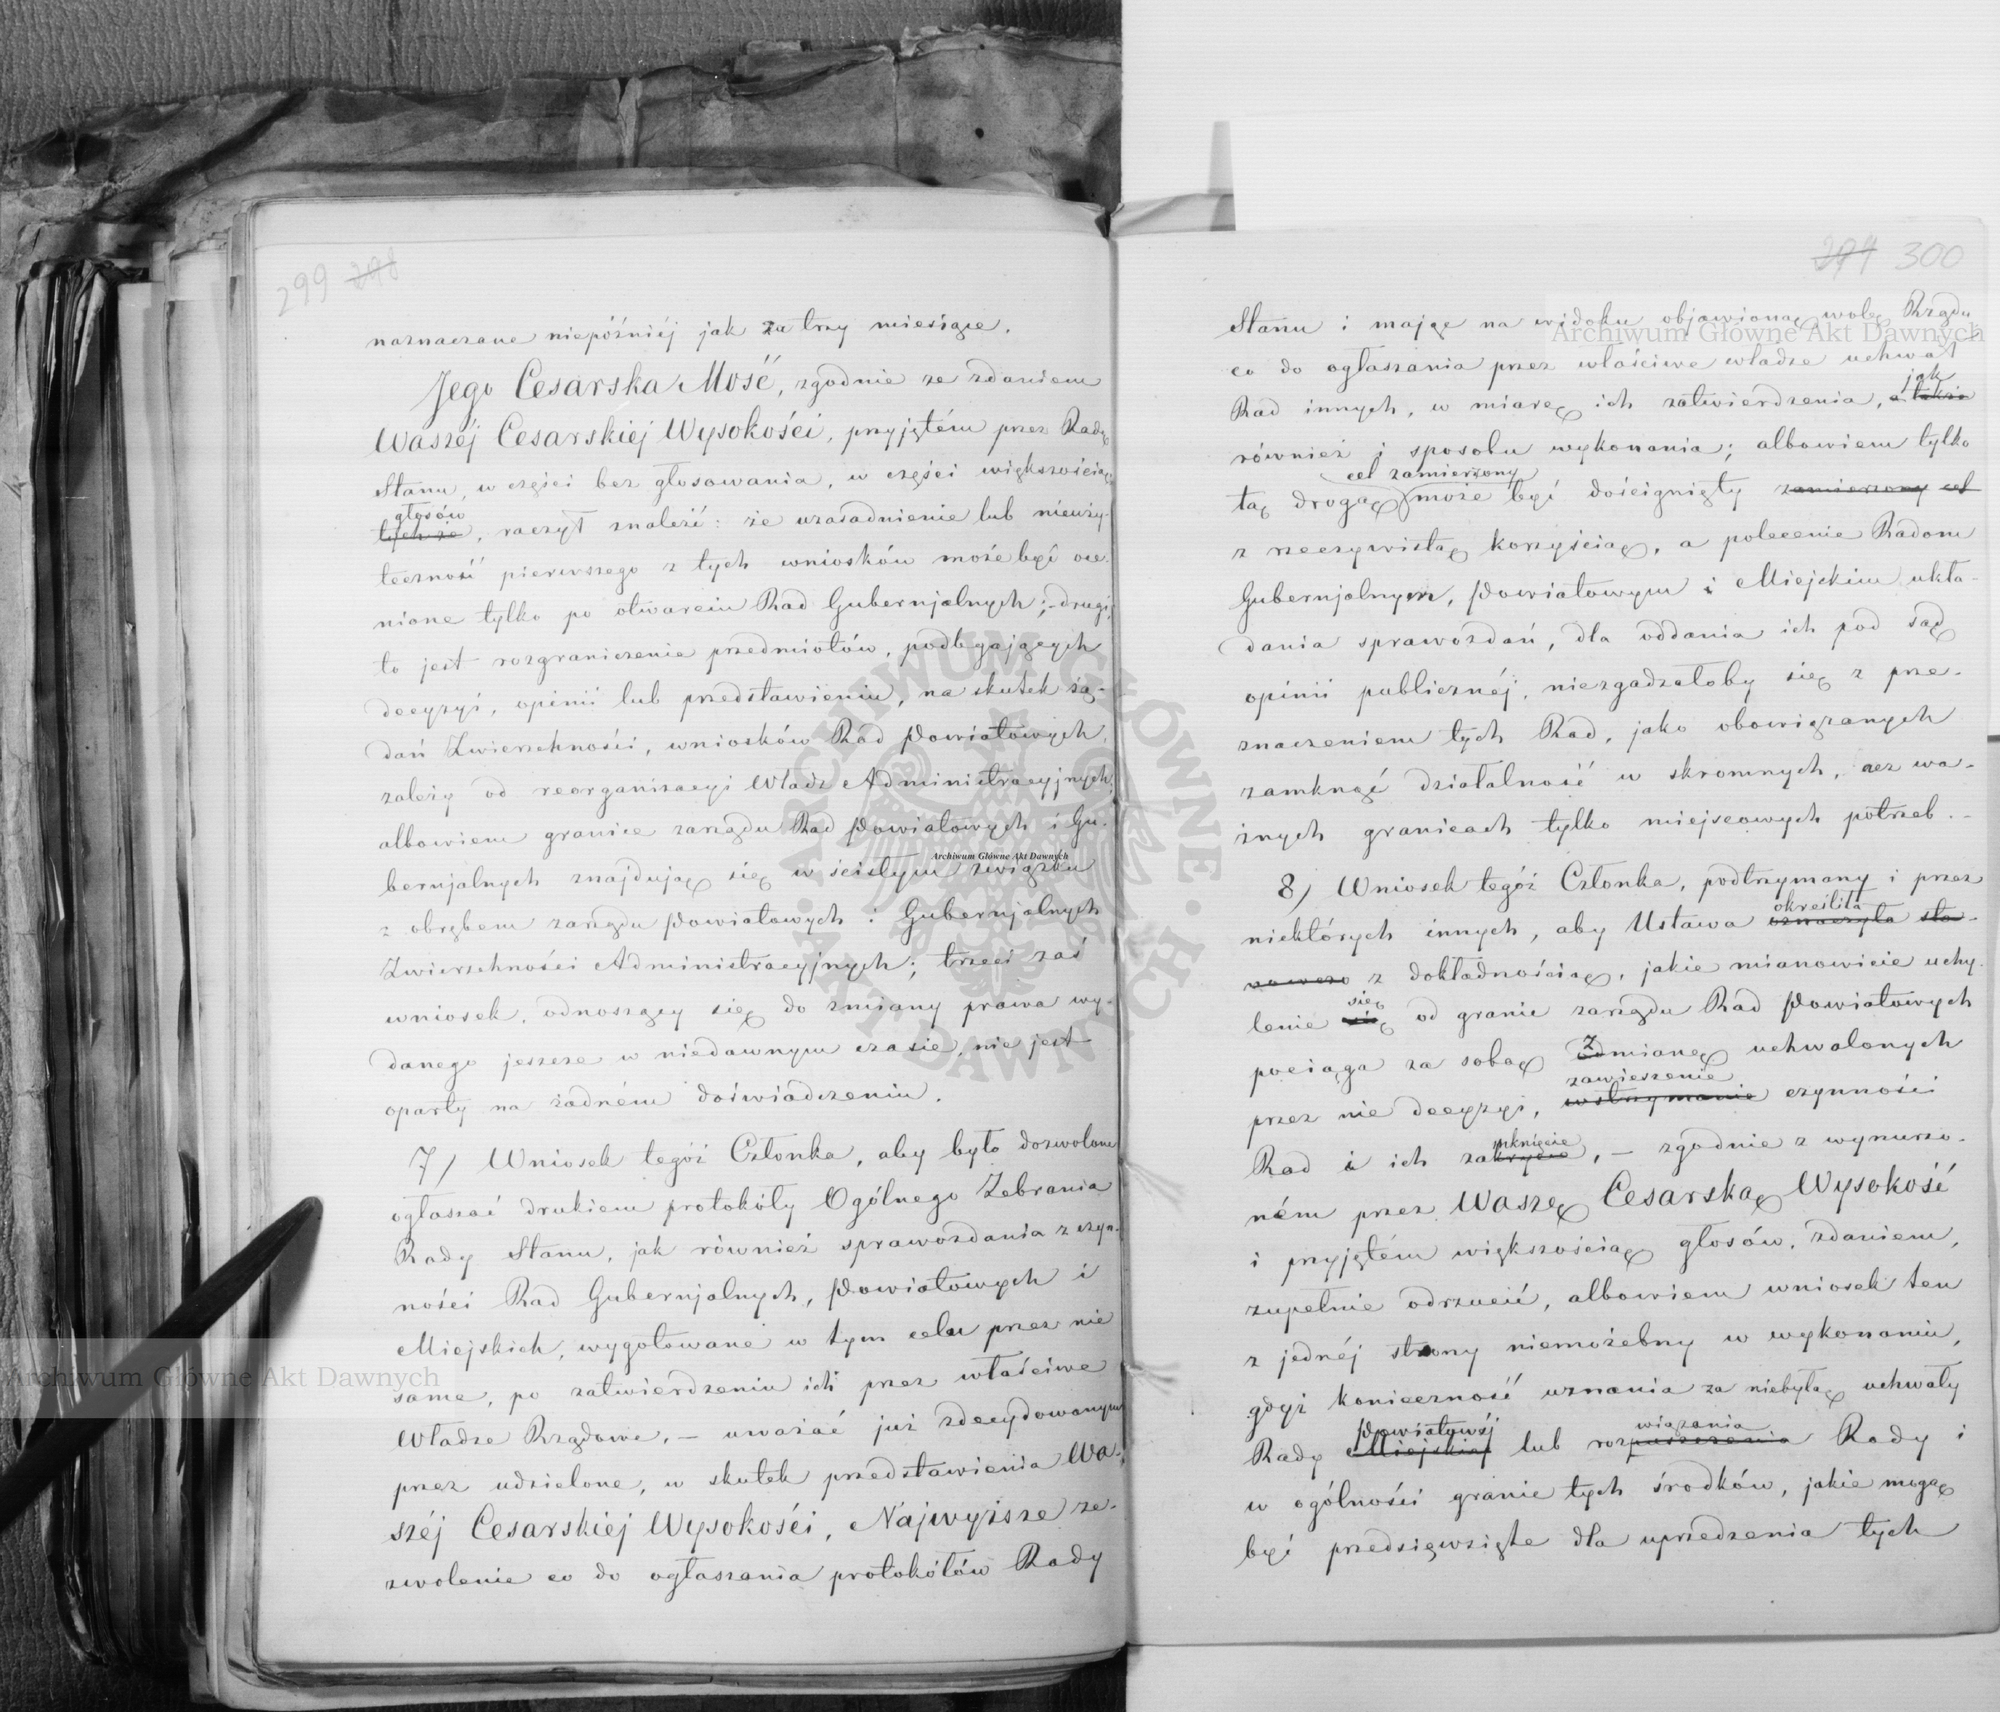 299 298
naznaczane niepóźniéj jak za trzy miesiące.
Jego Cesarska Mość, zgodnie ze zdaniem
Waszéj Cesarskiej Wysokości, przyjętém przez Radę
Stanu, w części bez głosowania, w części większością
głosów
tychże, raczył znaleźć: że uzasadnienie lub nieuży-
teczność pierwszego z tych wniosków może być oce-
nione tylko po otwarciu Rad Gubernjalnych; drugi,
to jest rozgraniczenie przedmiotów, podlegających
decyzyi, opinii lub przedstawieniu, na skutek żą-
dań Zwierzchności, wniosków Rad Powiatowych,
zależy od reorganizacyi Władz Administracyjnych,
albowiem granice zarządu Rad Powiatowych i Gu-
bernjalnych znajdują się w ścisłym związku
z obrębem zarządu Powiatowych i Gubernjalnych
Zwierzchności Administracyjnych; trzeci zaś
wniosek, odnoszący się do zmiany prawa wy-
danego jeszcze w niedawnym czasie, nie jest
oparty na żadném doświadczeniu.
7/ Wniosek tegóż Członka, aby było dozwolone
ogłaszać drukiem protokóły Ogólnego Zebrania
Rady Stanu, jak również sprawozdania z czyn-
ności Rad Gubernjalnych, Powiatowych i
Miejskich, wygotowane w tym celu przez nie
same, po zatwierdzeniu ich przez właściwe
Władze Rządowe, — uważać już zdecydowanym
przez udzielone, w skutek przedstawienia Wa-
széj Cesarskiej Wysokości, Najwyższe ze-
zwolenie co do ogłaszania protokółów Rady
294 300
Stanu i mając na widoku objawioną wolę Rządu,
co do ogłaszania przez właściwe władze uchwał
jak
Rad innych, w miarę ich zatwierdzenia, a także
również i sposobu wykonania; albowiem tylko
cel zamierzony
tą drogą może być doścignięty zamierzony cel
z rzeczywistą korzyścią, a polecenie Radom
Gubernjalnym, Powiatowym i Miejskim ukła-
dania sprawozdań, dla oddania ich pod sąd
opinii publicznéj, niezgadzałoby się z prze-
znaczeniem tych Rad, jako obowiązanych
zamknąć działalność w skromnych, acz wa-
żnych granicach tylko miejscowych potrzeb. —
8/ Wniosek tegóż Członka, podtrzymany i przez
określiła
niektórych innych, aby Ustawa oznaczyła sta-
nowczo z dokładnością, jakie mianowicie uchy-
się
lenie się od granic zarządu Rad Powiatowych
z
pociąga za sobą odmianę uchwalonych
zawieszenie
przez nie decyzyi, wstrzymanie czynności
mknięcie
Rad i ich zakrycie, — zgodnie z wynurzo-
ném przez Waszę Cesarską Wysokość
i przyjętém większością głosów, zdaniem,
zupełnie odrzucić, albowiem wniosek ten
z jednéj strony niemożebny w wykonaniu,
gdyż konieczność uznania za niebyłą uchwały
Powiatowéj wiązania
Rady Miejskiej lub rozpuszczenia Rady i
w ogólności granic tych środków, jakie mogą
być przedsięwzięte dla uprzedzenia tych
Archiwum Główne Akt Dawnych
Archiwum Główne Akt Dawnych
Archiwum Główne Akt Dawnych
ARCHIWUM GŁÓWNE AKT DAWNYCH